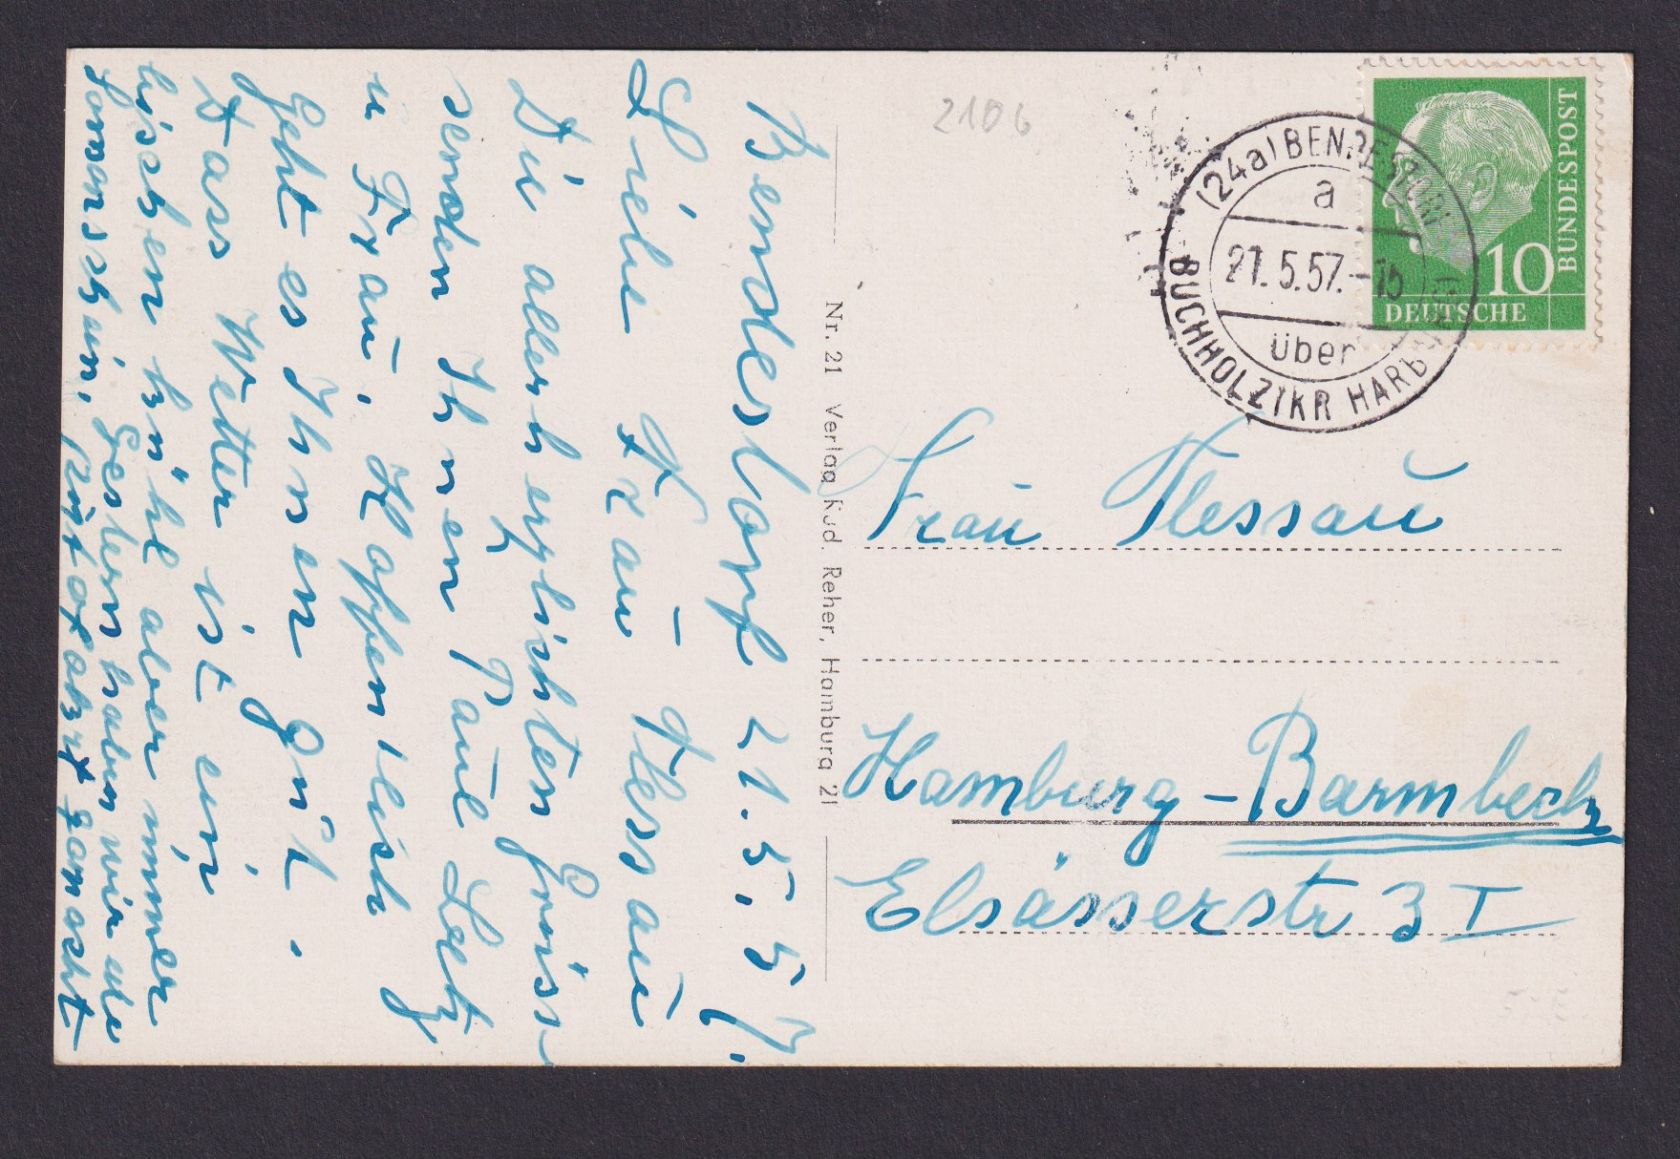 Bendestorf 21.5.57.
Liebe Frau Flessau
Die allerherzlichsten Grüsse
senden Ihnen Paul Letz
u Frau. Hoffentlich
geht es Ihnen gut.
Dass Wetter ist ein
bischen kühl aber immer
Sonnenschein, Gestern haben wir die
ganscht
Nr. 21 Verlag Rud. Reher, Hamburg 21
2106
(24a) BENDESTORF
a
21.5.57.-16
über
BUCHHOLZ (KR HARBURG)
DEUTSCHE
BUNDESPOST
10
Frau Flessau
Hamburg-Barmbeck
Elsässerstr 3 I